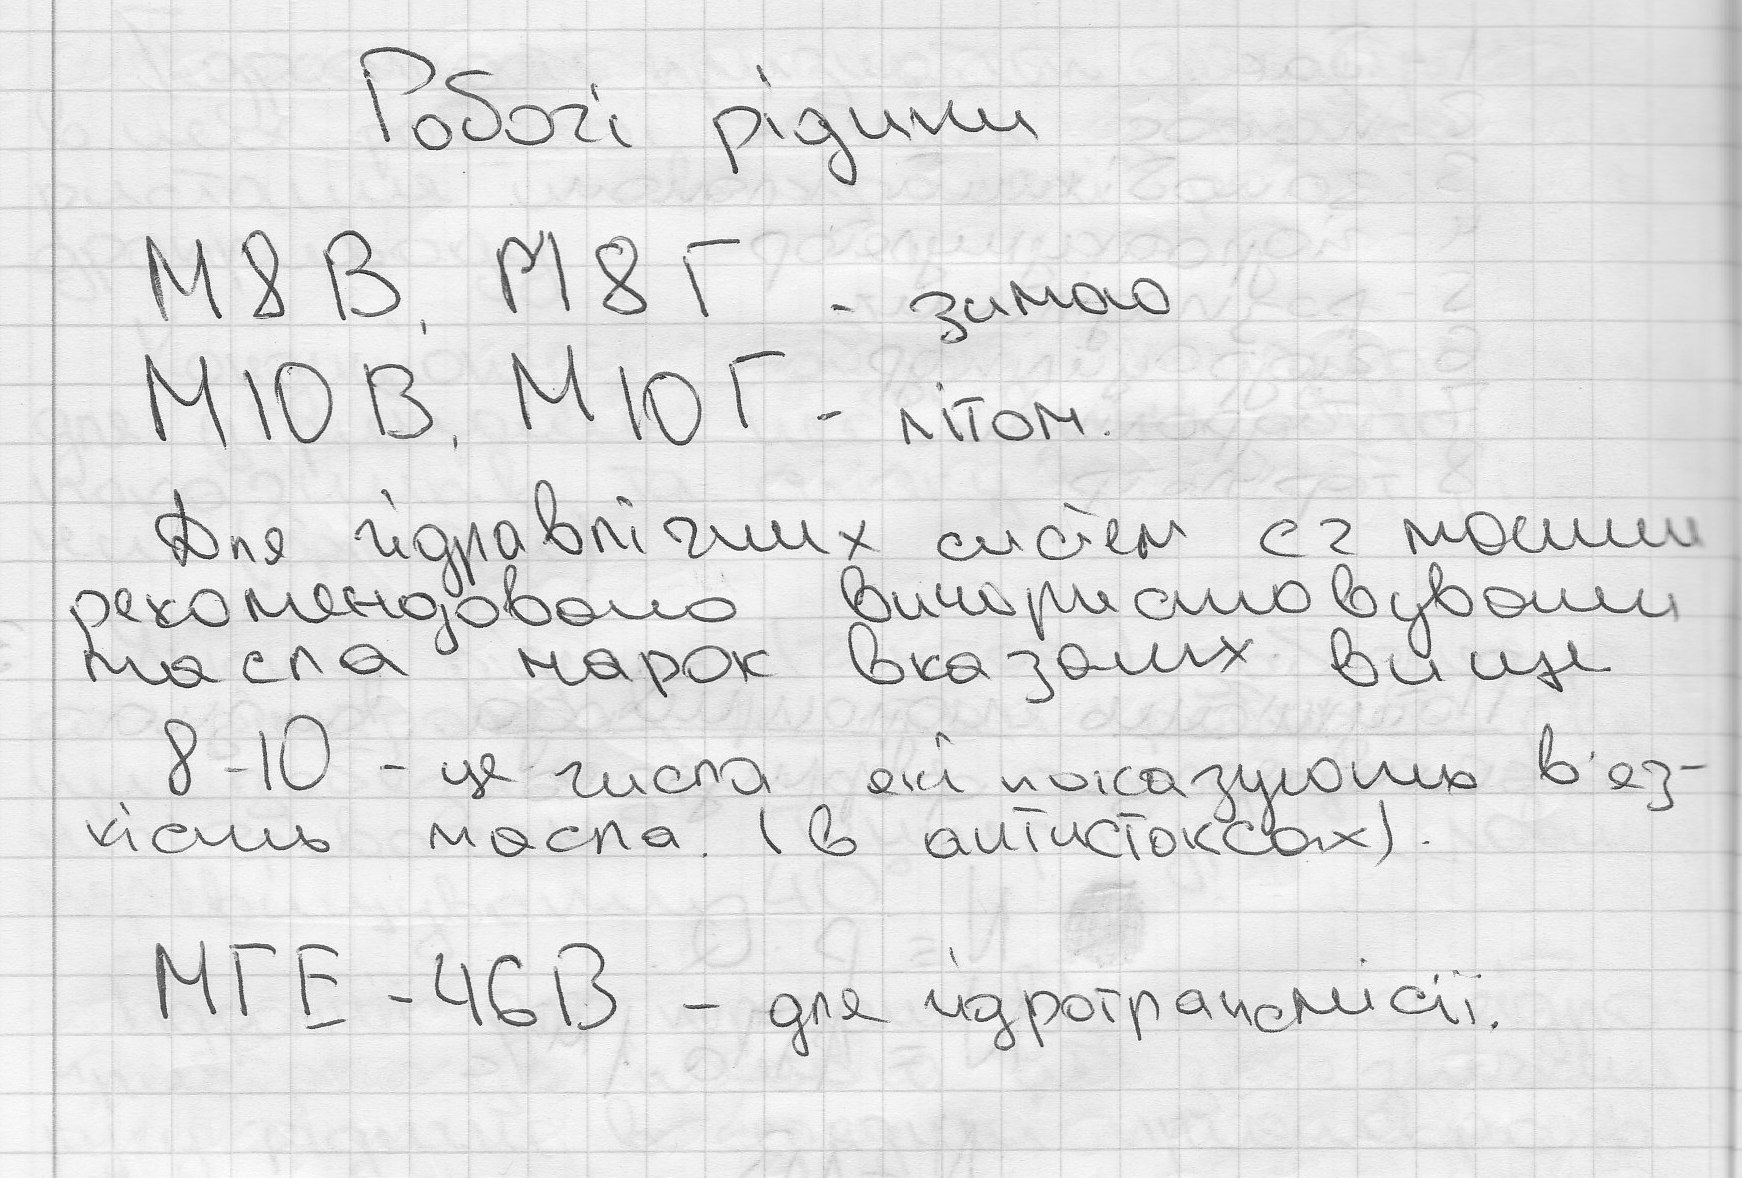 Робочі рідини
М8В, М8Г - зимою
М10В, М10Г - літом.
Для гідравлічних систем сг машин
рекомендовано використовувати
масла марок вказаних вище
8-10 - це числа які показують в'яз-
кість масла. (в антистоксах).
МГЕ-46В - для гідротрансмісії.